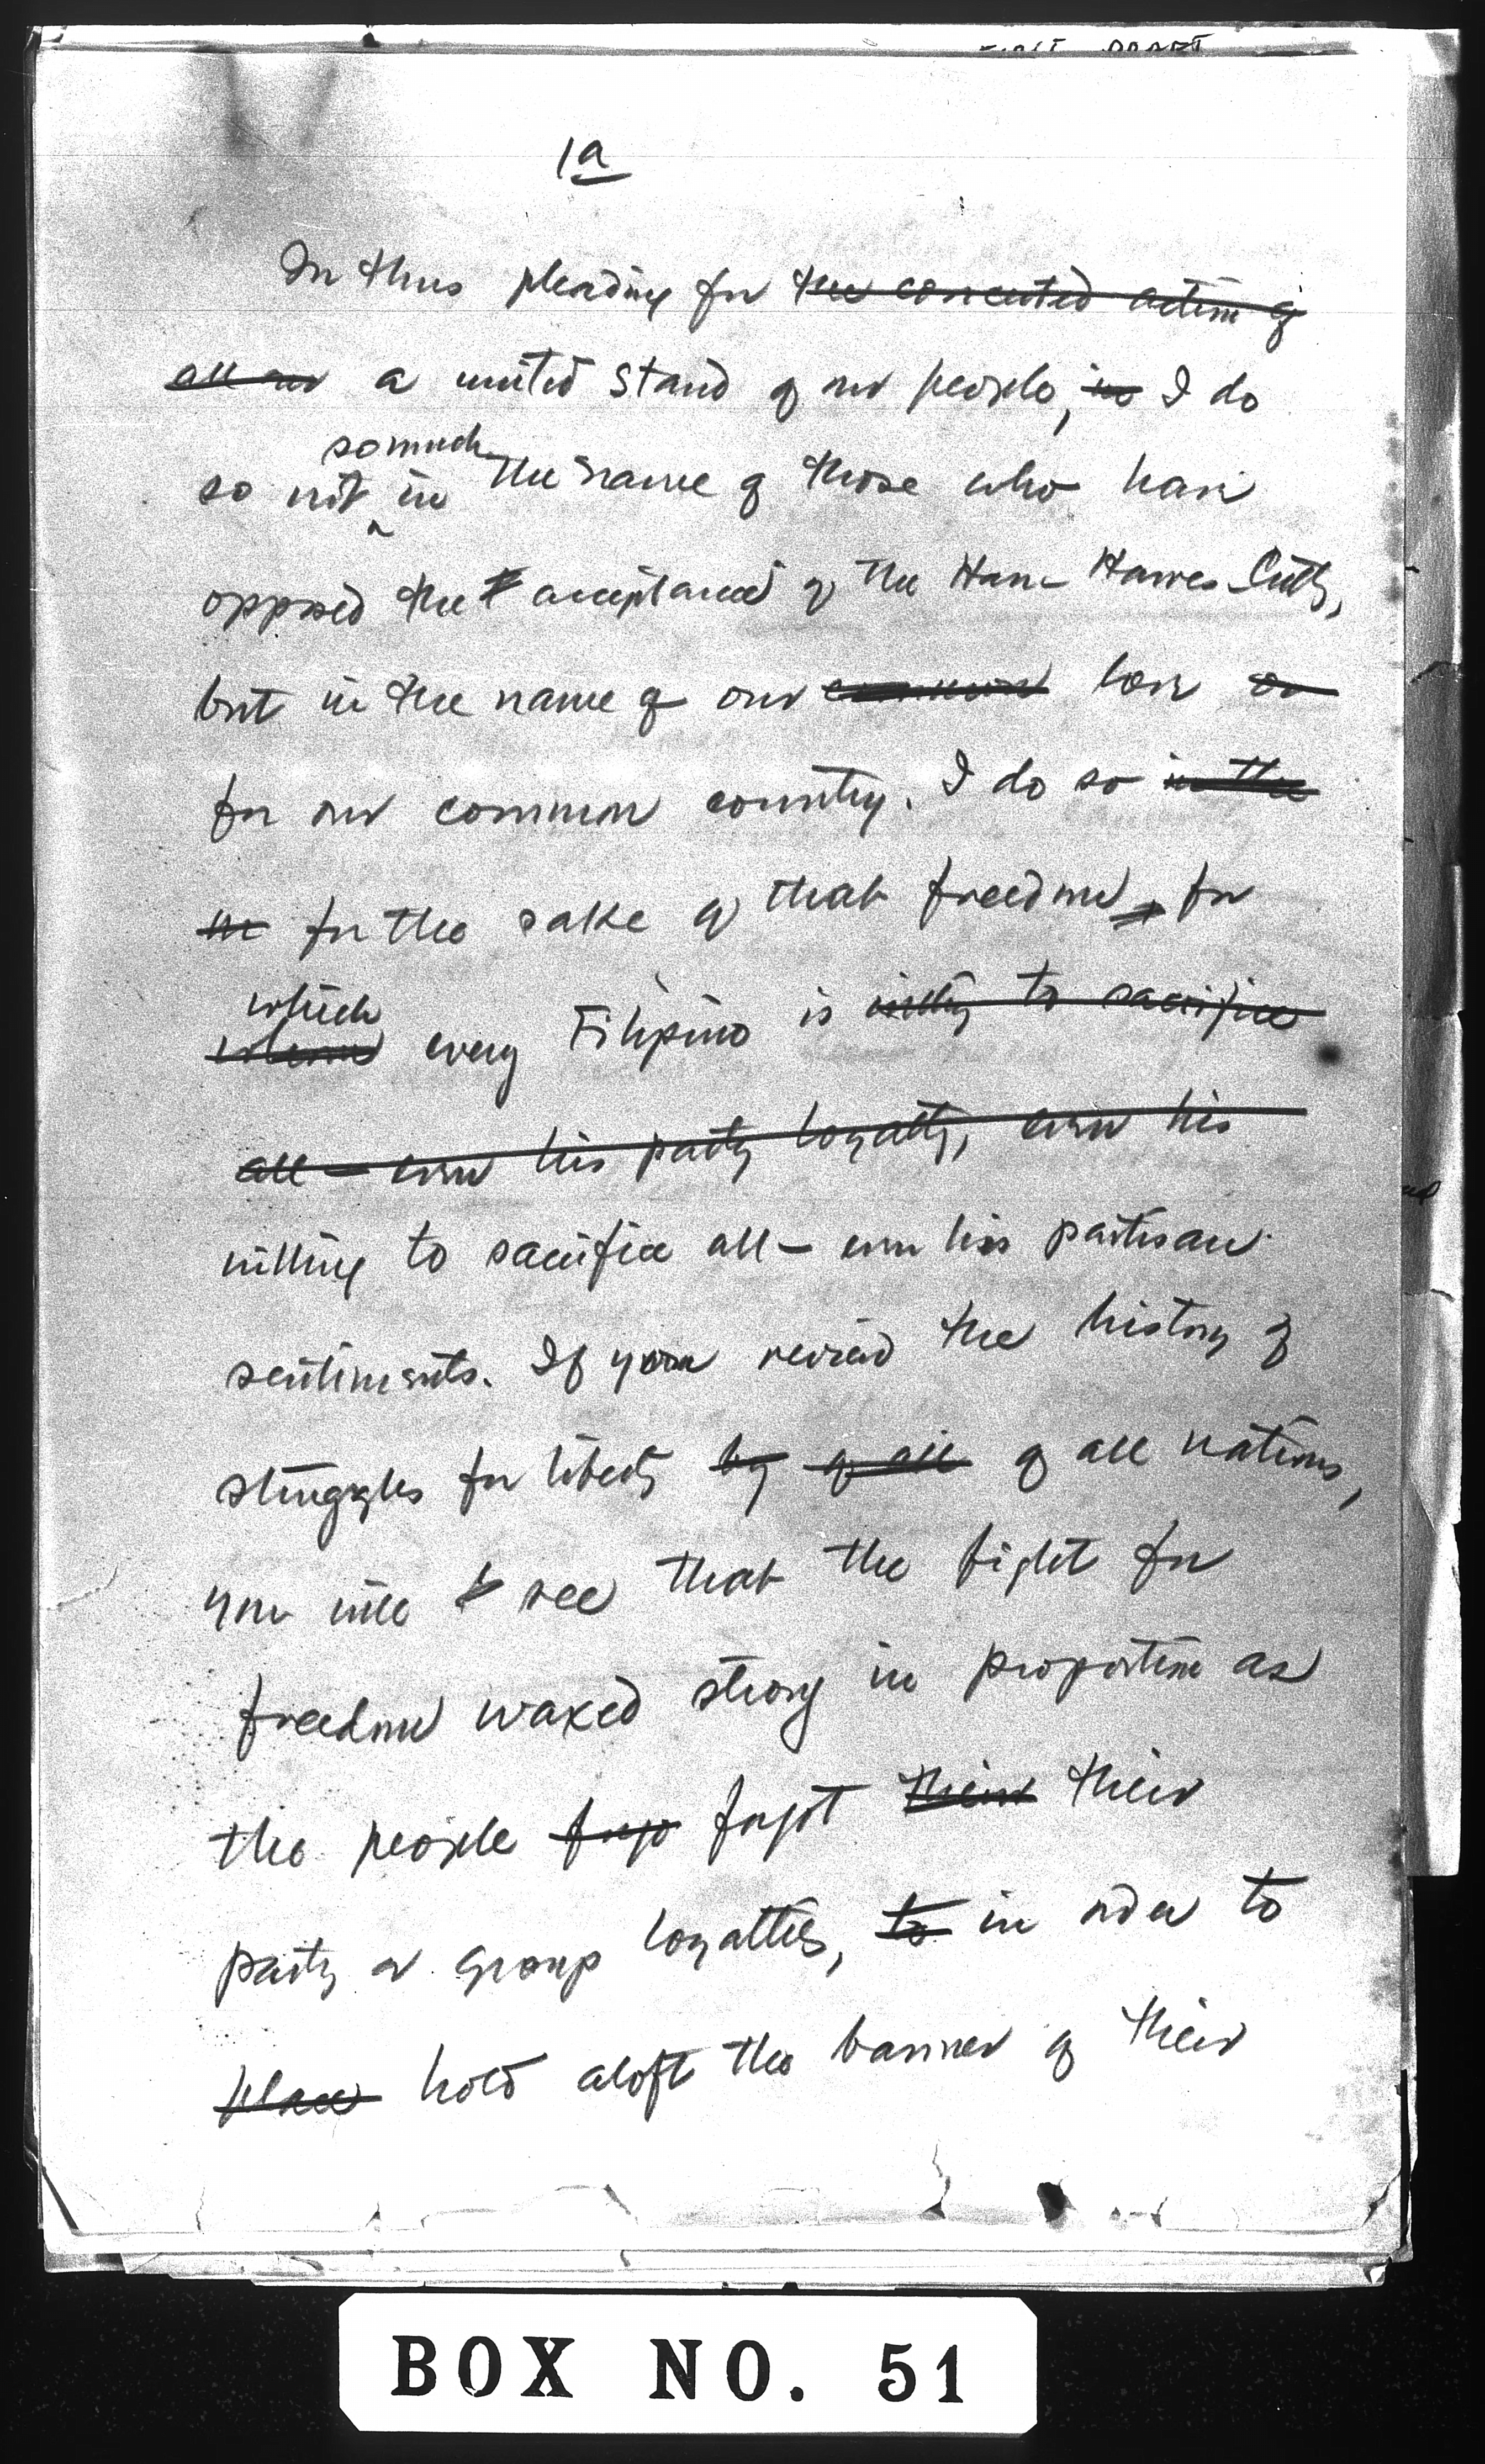 FIRST DRAFT
1a
In thus pleading for the concerted action of
all our a united stand of our people, in I do
so much
so not in the name of those who have
opposed the acceptance of the Hare-Hawes-Cutting,
but in the name of our common love or
for our common country. I do so in the
in for the sake of that freedom, for
which
whom every Filipino is willing to sacrifice
all — even his party loyalty, even his
willing to sacrifice all — even his partisan
sentiments. If you reread the history of
struggles for liberty by of all of all nations,
you will to see that the fight for
freedom waxed strong in proportion as
the people forgo forgot their their
party or group loyalties, to in order to
place hold aloft the banner of their
BOX NO. 51